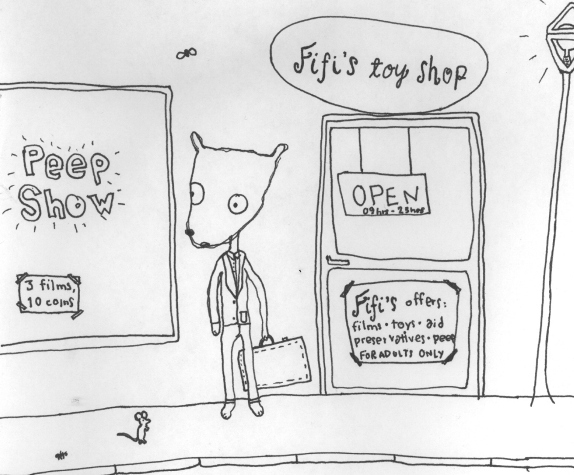 Fifi's toy shop
Peep
Show
3 films,
10 coins
OPEN
09hrs - 23hrs
Fifi's offers:
films • toys • aid
preservatives • peep
FOR ADULTS ONLY